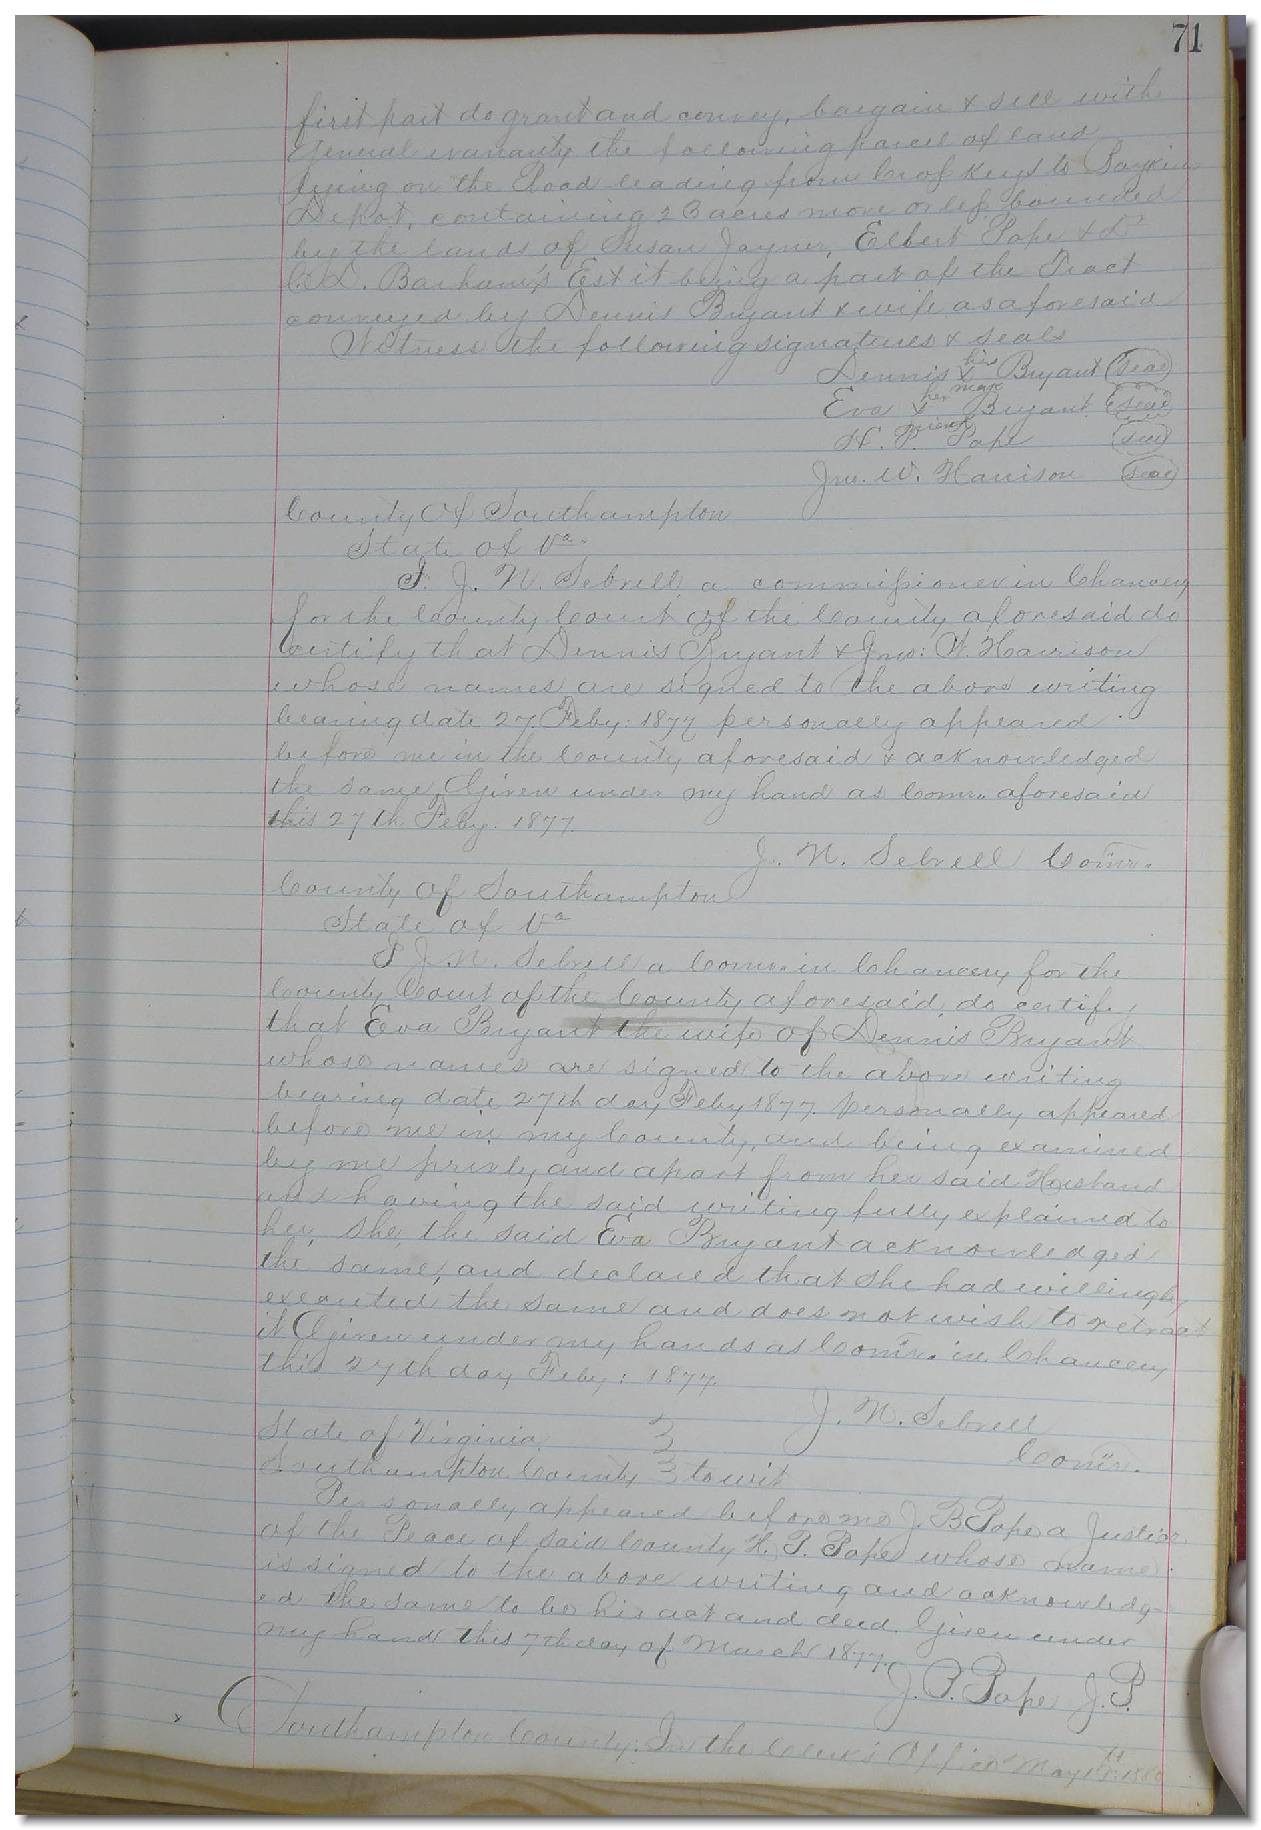 71
first part do grant and convey, bargain & sell with
General warranty the following parcel of land
lying on the Road leading from Cross Keys to Boykins
Depot, containing 23 acres more or less bounded
by the lands of Susan Joyner, Elbert Pope & Dr
C. D. Barham's Est it being a part of the Tract
conveyed by Dennis Bryant & wife as aforesaid
Witness the following signatures & seals
his
Dennis x Bryant (seal)
mark
her
Eva x Bryant (seal)
mark
H. P. Pope (seal)
Jno. W. Harrison (seal)
County Of Southampton
State of Va.
I. J. N. Sebrell, a commissioner in Chancery
for the County Court of the County aforesaid do
Certify that Dennis Bryant & Jno: W. Harrison
whose names are signed to the above writing
bearing date 27 Feby: 1877 personally appeared
before me in the County aforesaid & acknowledged
the same, Given under my hand as Comr. aforesaid
this 27th Feby. 1877.
J. N. Sebrell Comr.
County of Southampton
State of Va
I J. N. Sebrell a Comr. in Chancery for the
County Court of the County aforesaid, do certify
that Eva Bryant the wife of Dennis Bryant
whose names are signed to the above writing
bearing date 27th day Feby 1877. personally appeared
before me in my County, and being examined
by me privly and apart from her said Husband
and having the said writing fully explained to
her, she, the said Eva Bryant acknowledged
the same, and declared that she had willingly
executed the same and does not wish to retract
it Given under my hands as Comr. in Chancery
this 27th day Feby: 1877.
J. N. Sebrell
Comr.
State of Virginia
Southampton County to wit
Personally appeared before me J. B Pope a Justice
of the Peace of said County H. P. Pope whose name
is signed to the above writing and acknowledg-
ed the same to be his act and deed. Given under
my hand this 7th day of March 1877.
J. B. Pope J. P.
Southampton County: In the Clerk's Office May